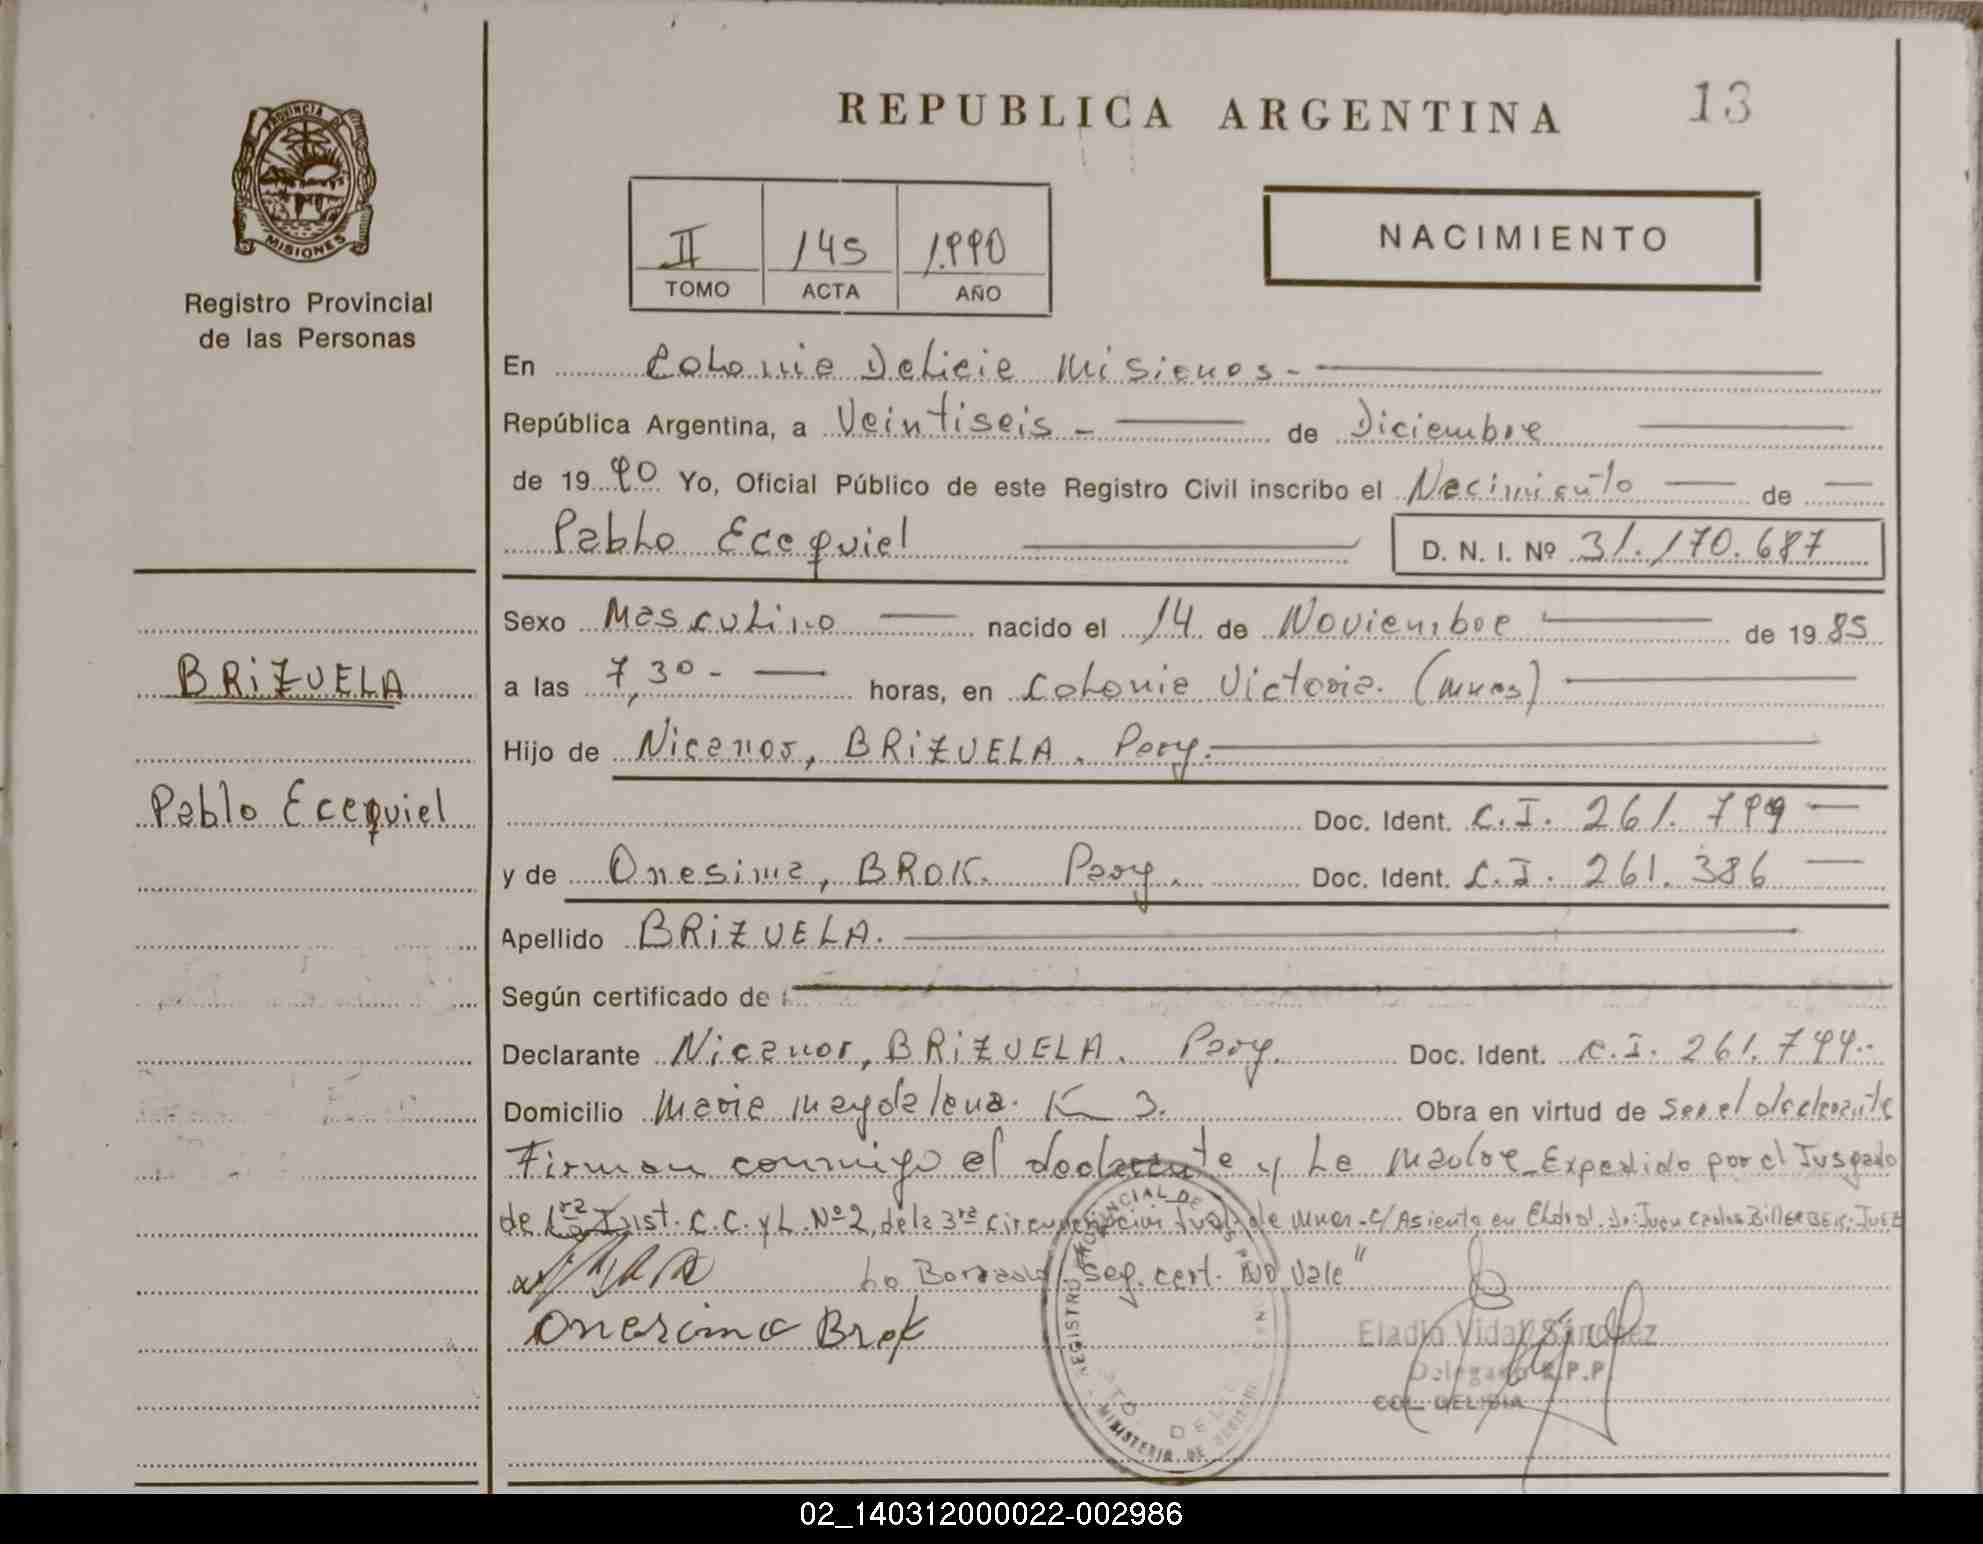 REPUBLICA ARGENTINA
13
PROVINCIA DE
MISIONES
Registro Provincial
de las Personas
II 145 1.990
TOMO ACTA AÑO
NACIMIENTO
En Colonia Delicia Misiones.-
República Argentina, a Veintiseis - de Diciembre
de 19 90 Yo, Oficial Público de este Registro Civil inscribo el Nacimiento de
Pablo Ecequiel D. N. I. Nº 31.170.687
Sexo Masculino nacido el 14 de Noviembre de 19 85
BRIZUELA
a las 7,30 - horas, en Colonia Victoria. (Mnes)
Hijo de Nicanor, BRIZUELA. Pary.
Pablo Ecequiel
Doc. Ident. C.I. 261.799
y de Onesima, BROK. Pary. Doc. Ident. C.I. 261.386
Apellido BRIZUELA.
Según certificado de
Declarante Nicanor, BRIZUELA. Pary. Doc. Ident. C.I. 261.799.-
Domicilio Maria Magdalena. K 3. Obra en virtud de Ser el declarante
Firman conmigo el declarante y La Madre_ Expedido por el Jusgado
de 1ra Inst. C.C. y L. Nº 2, de la 3ra circunscripcion Jud. de Mnes. c/Asiento en Eldo. Dr: Juan Carlos JUEZ
Lo Borrado seg. cert. NO Vale"
Onesima Brok
REGISTRO PROVINCIAL DE LAS PERSONAS
MINISTERIO DE GOBIERNO
Eladio Vidal Sánchez
Delegado R.P.P.
COL. DELICIA
02_140312000022-002986